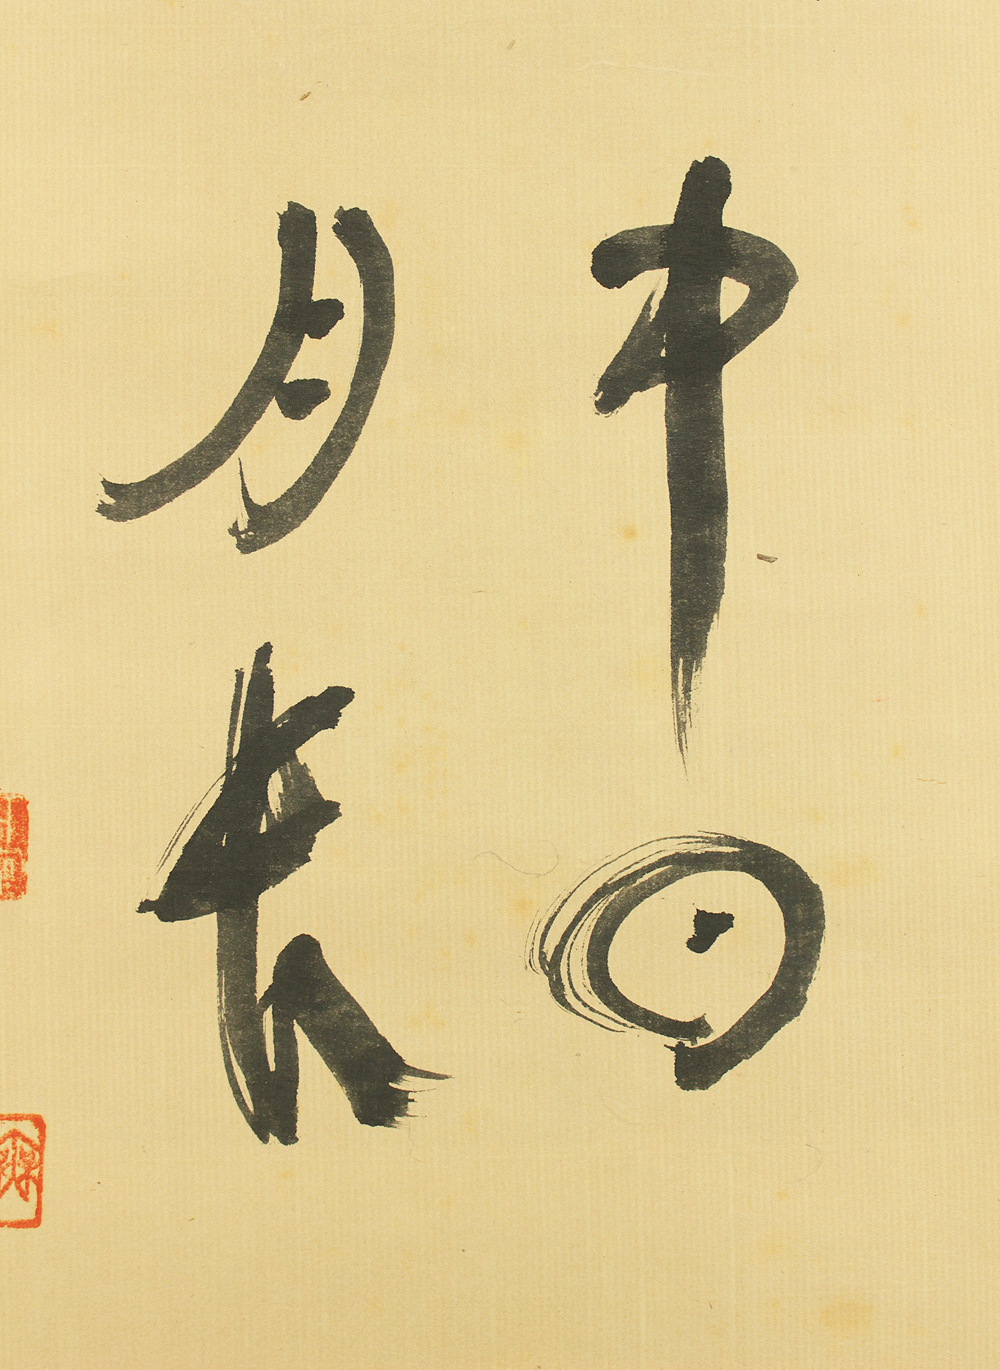 中日
月長